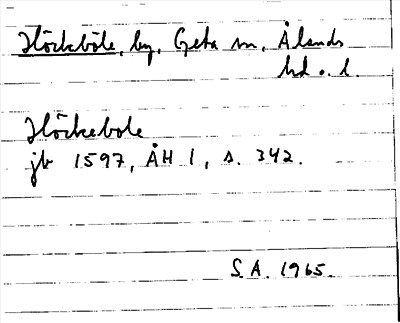 Höckböle, by, Geta sn, Ålands
hd o. l.
Höckebole
jb 1597, ÅH 1, s. 342.
S.A. 1965.